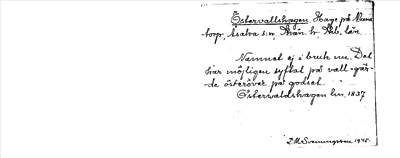 Östervallshagen. Hage på Rume
torp, Asaka s:n, Vnän h. Skb. län.
Namnet ej i bruk nu. Det
har möjligen syftat på vall-går-
de österöver på godset.
Östervaldshagen lm. 1837
Z.M. Svenungsson 1945.